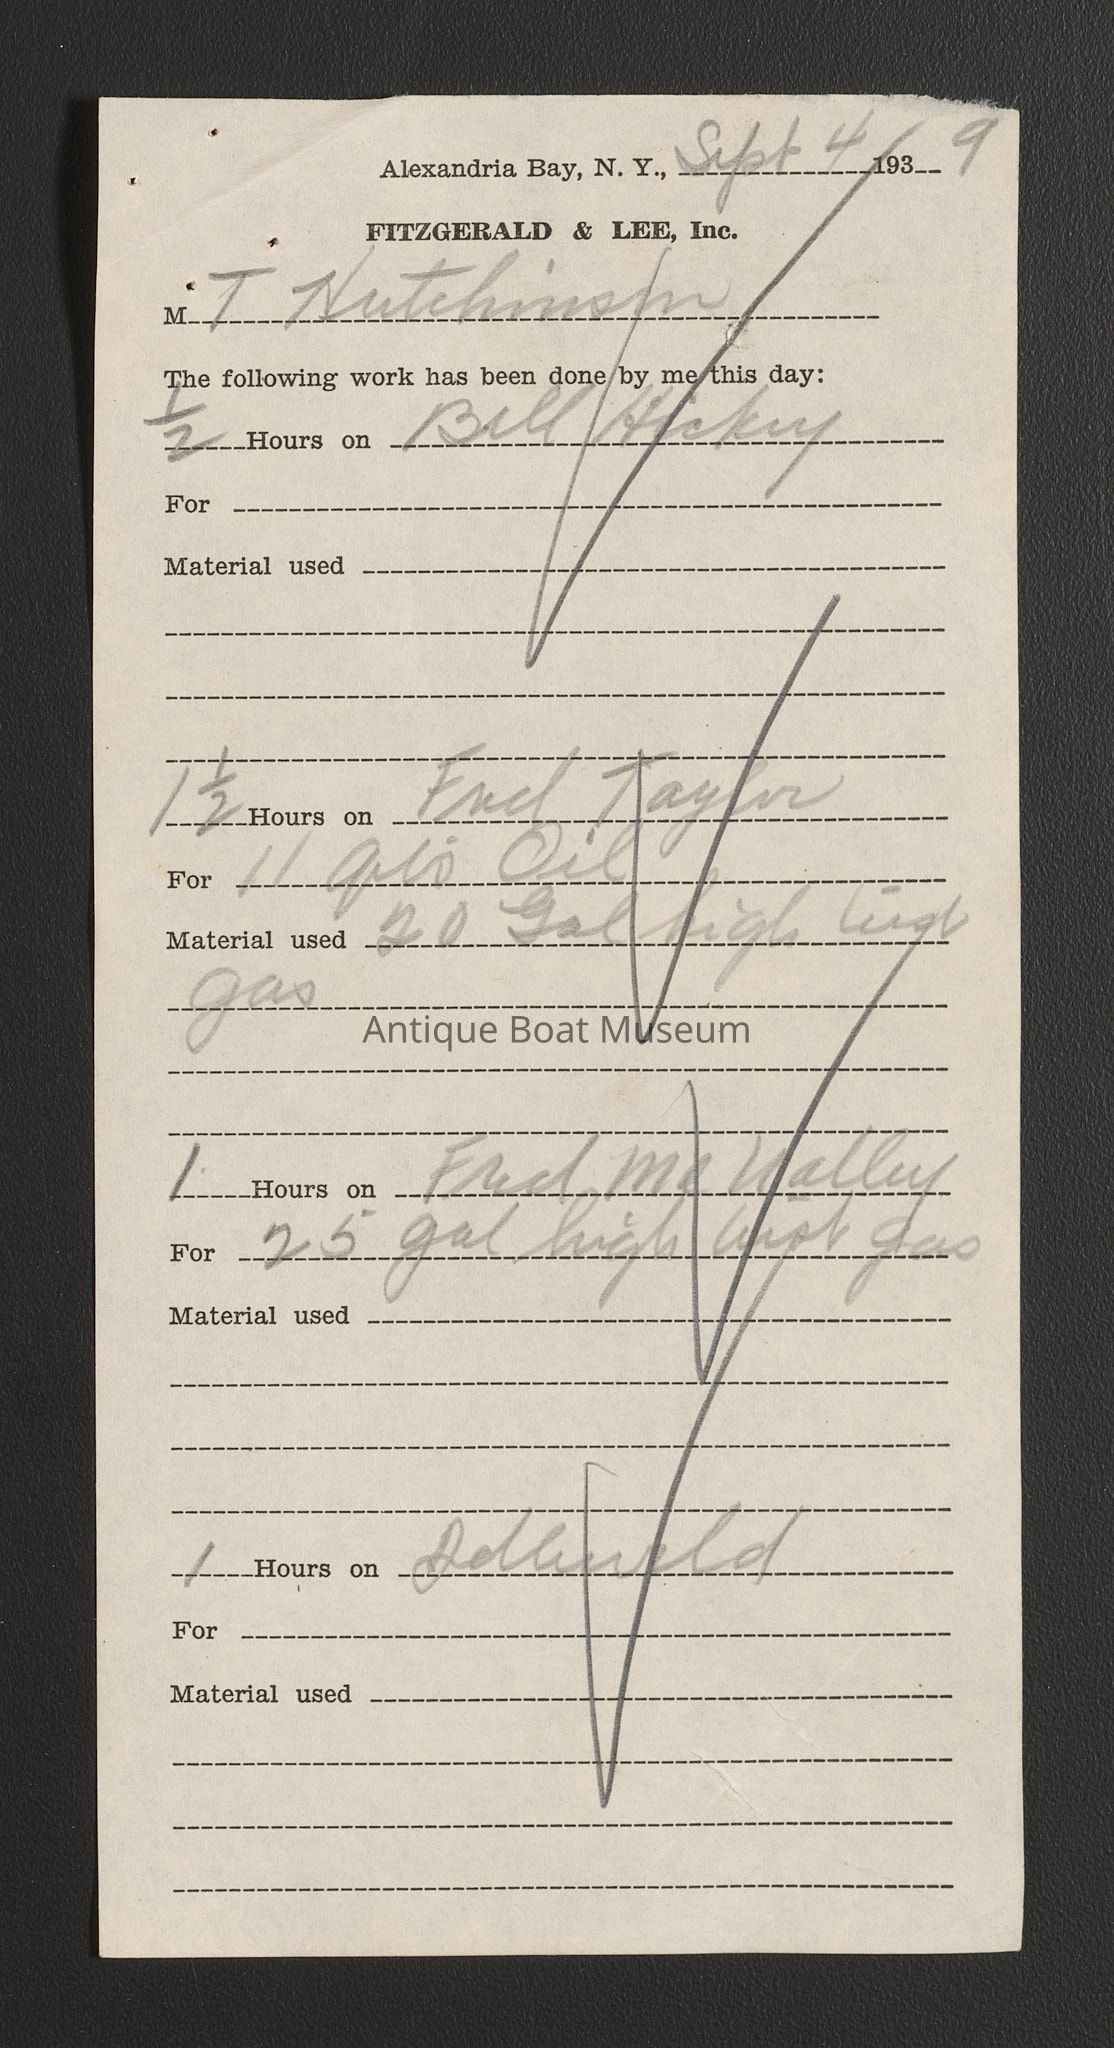 Alexandria Bay, N. Y., Sept 4 1939
FITZGERALD & LEE, Inc.
M T Hutchinson
The following work has been done by me this day:
1/2 Hours on Bill Hickey
For
Material used
1 1/2 Hours on Fred Taylor
For 11 qts Oil
Material used 20 Gal high test
gas
Antique Boat Museum
1 Hours on Fred McNalley
For 25 gal high test gas
Material used
1 Hours on Idlewild
For
Material used